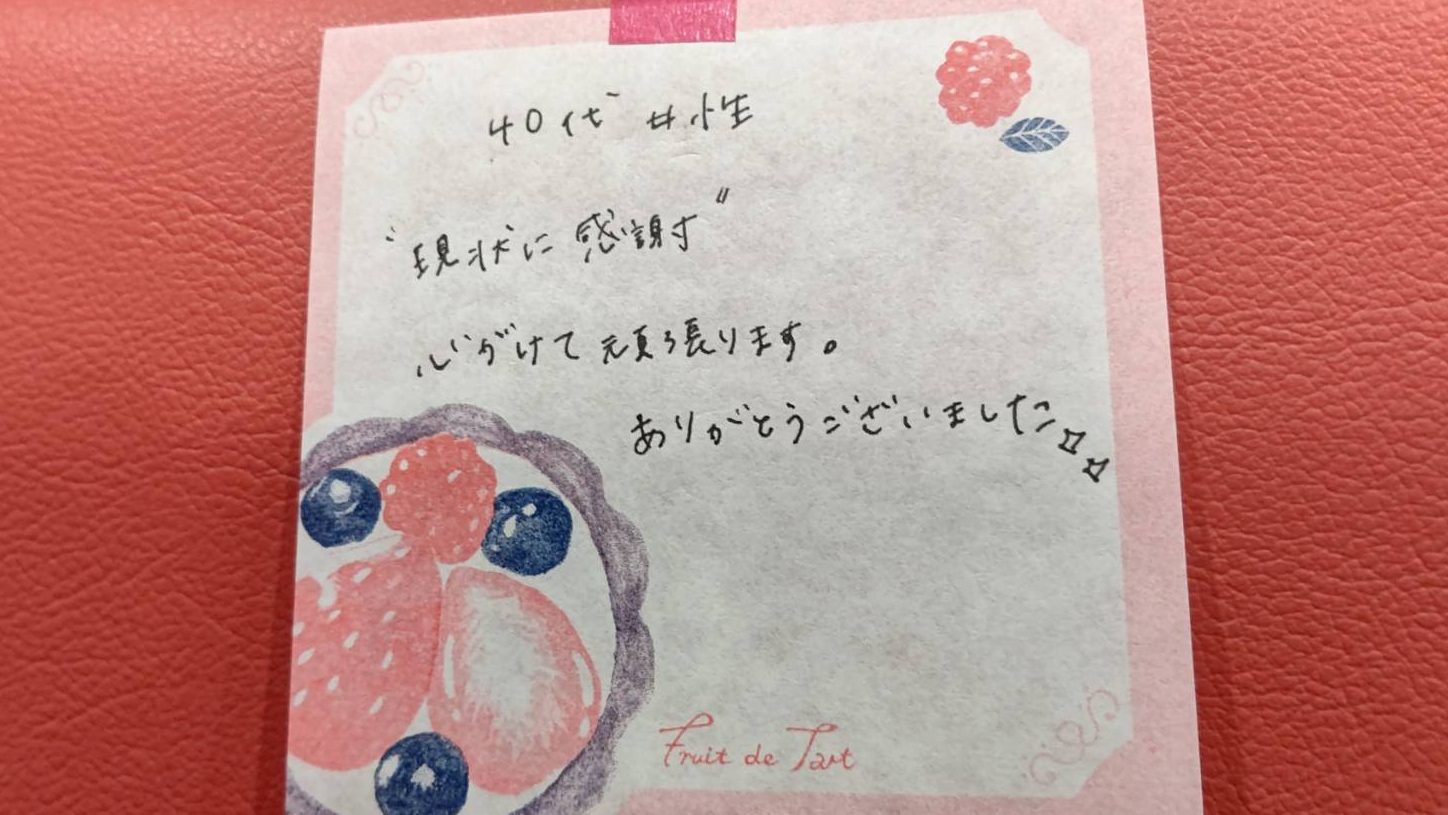 40代 女性
"現状に感謝"
心がけて頑張ります。
ありがとうございました☆☆
Fruit de Tart